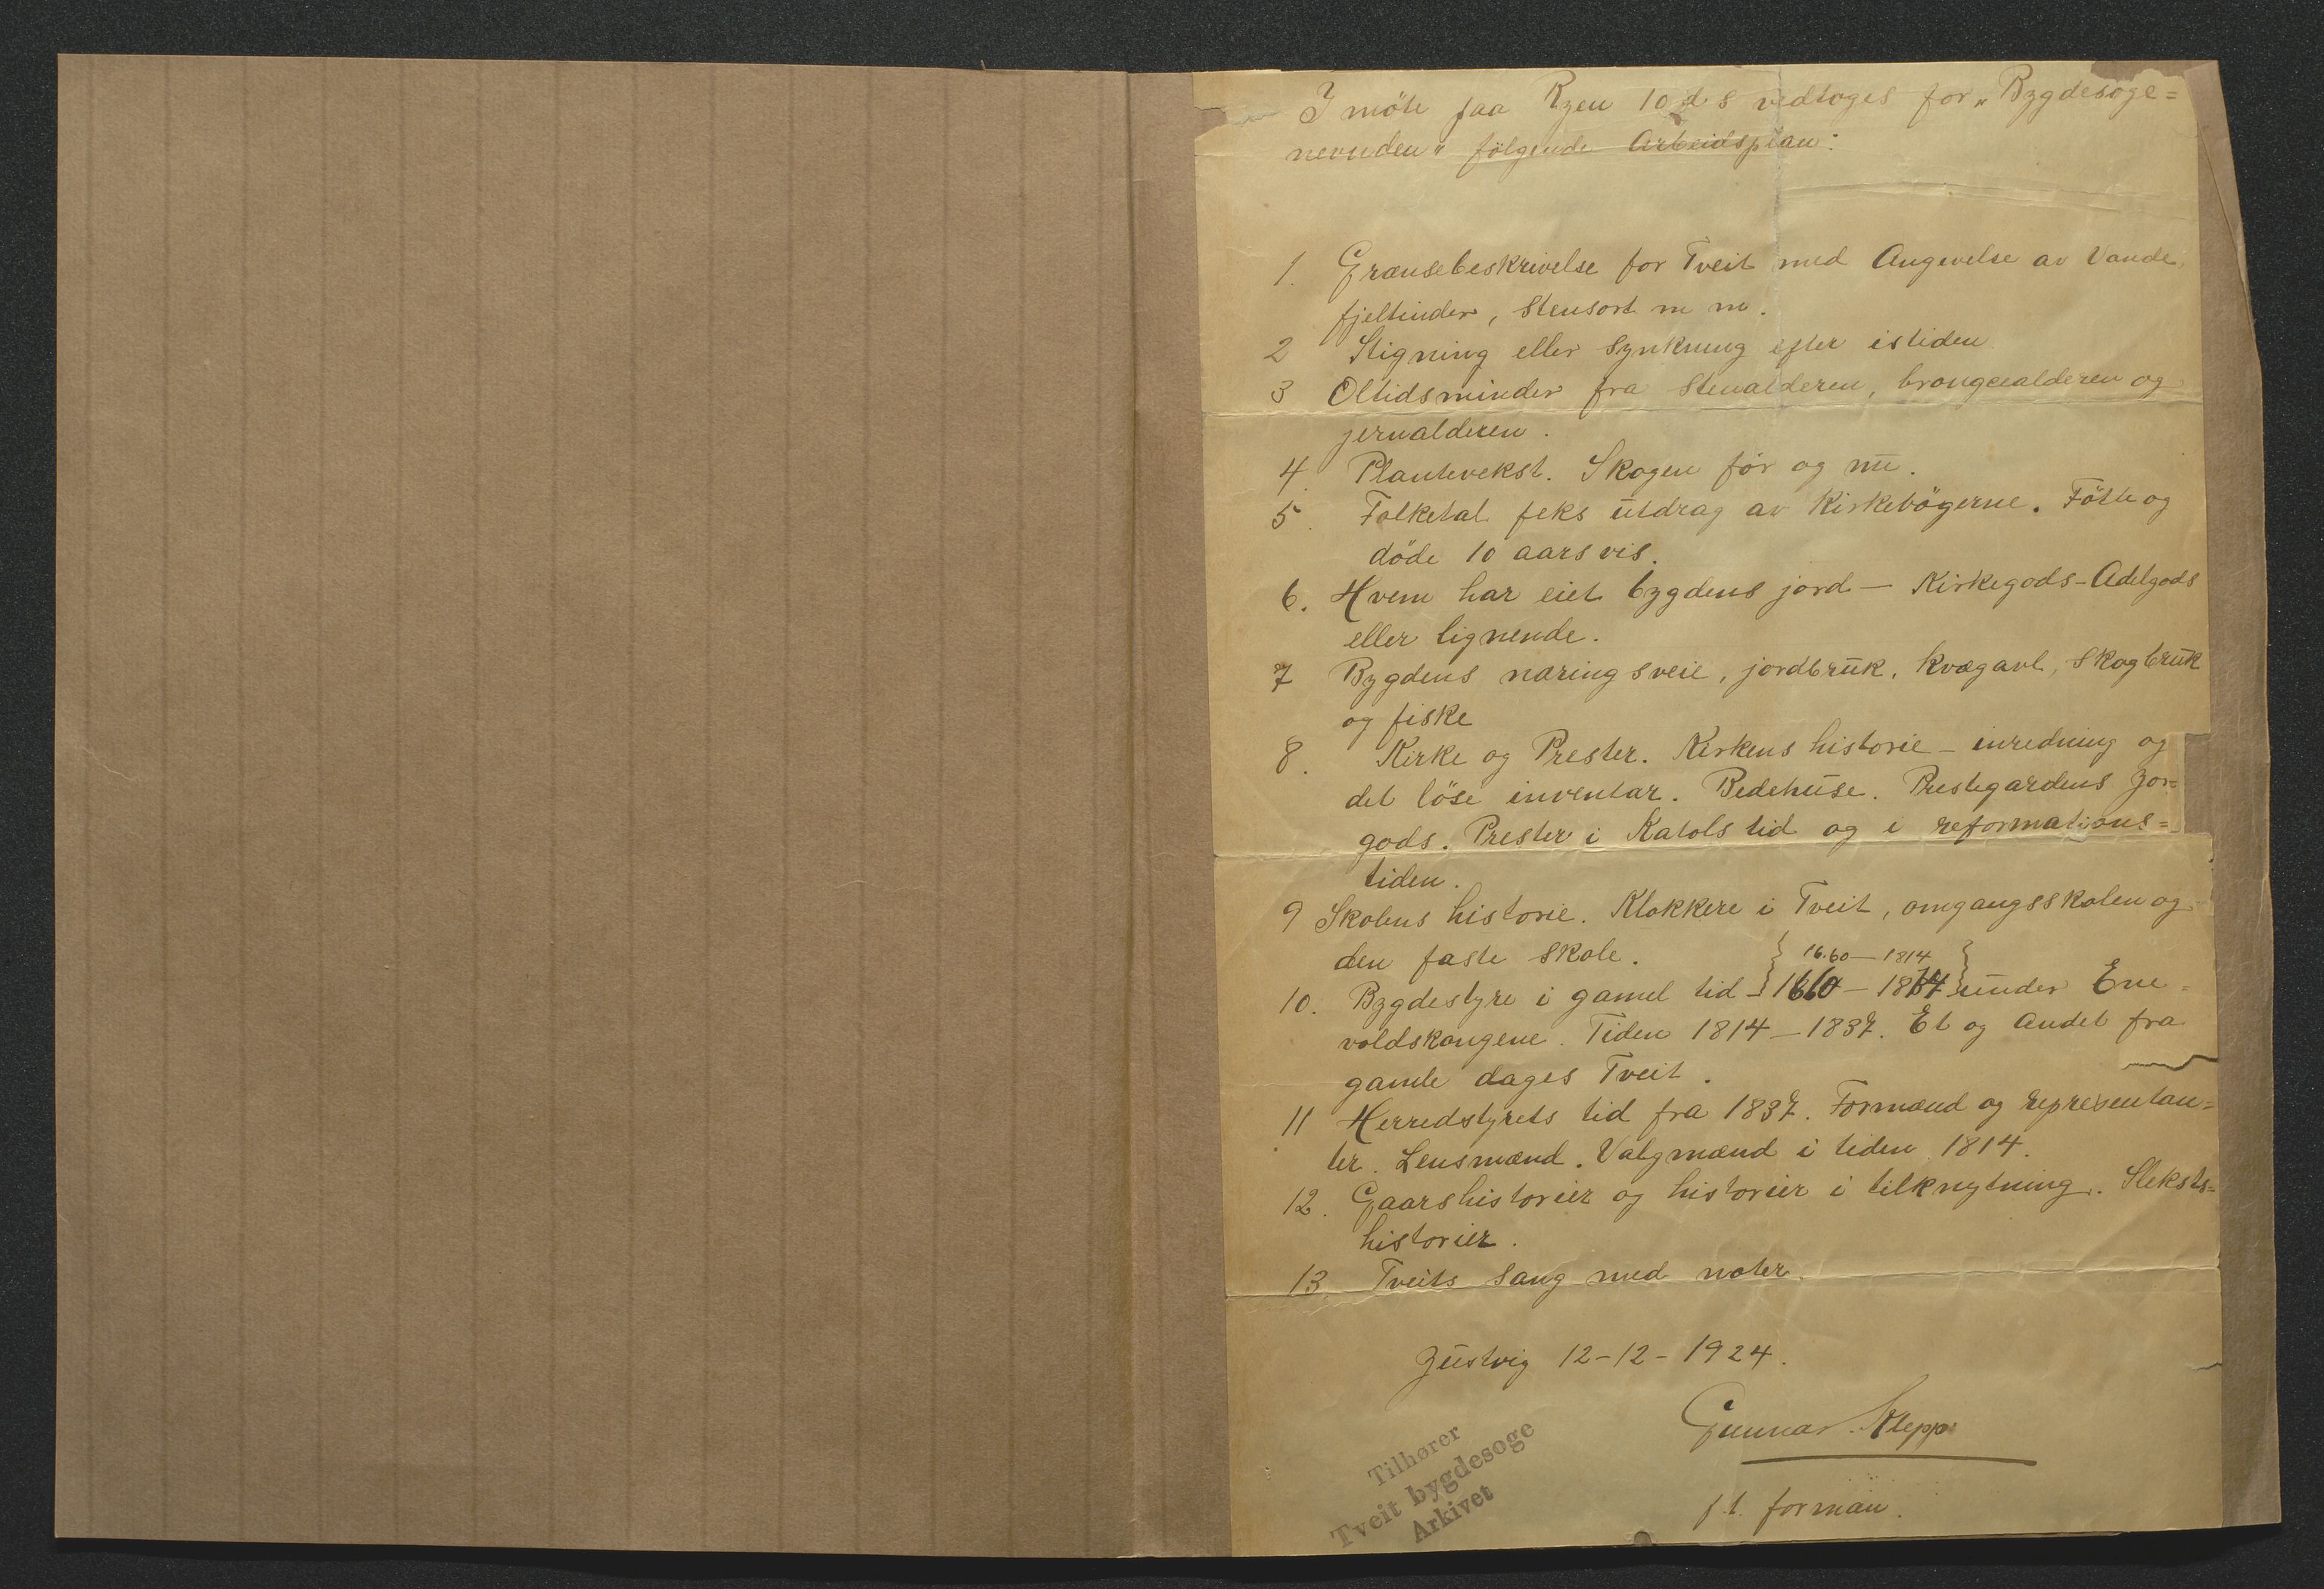 I möte paa Ryen 10 ds vedtoges for „Bygdesoge=
nevnden" fölgende Arbeidsplan:
1. Grænsebeskrivelse for Tveit med Angivelse av Vande,
fjeltinder, stensort m m.
2 Stigning eller synkning efter istiden
3 Oltidsminder fra stenalderen, brongcealderen og
jernalderen.
4. Plantevekst. Skogen för og nu.
5. Folketal feks utdrag av Kirkebögerne. Fötte og
döde 10 aarsvis.
6. Hvem har eiet bygdens jord — Kirkegods - Adelgods
eller lignende.
7 Bygdens næringsveie, jordbruk, kvægavl, skogbruk
og fiske
8. Kirke og Prester. Kirkens historie – inredning og
det löse inventar. Bedehuse. Prestegardens Jor=
gods. Prester i Katols tid og i reformations=
tiden.
9 Skolens historie. Klokkere i Tveit, omgangsskolen og
den faste skole.
16.60 — 1814
10. Bygdestyre i gamel tid } 1660 – 1814 } under Ene=
voldskongene. Tiden 1814 – 1837. Et og Andet fra
gamle dages Tveit.
11 Herredstyrets tid fra 1837. Formænd og representan=
ter. Lensmænd. Valgmænd i tiden 1814.
12. Gaarshistorier og historier i tilknytning. Slekts=
historier.
13. Tveits sang med noter.
Justvig 12-12-1924.
Gunnar Klepp
f.t. forman.
Tilhører
Tveit bygdesoge
Arkivet